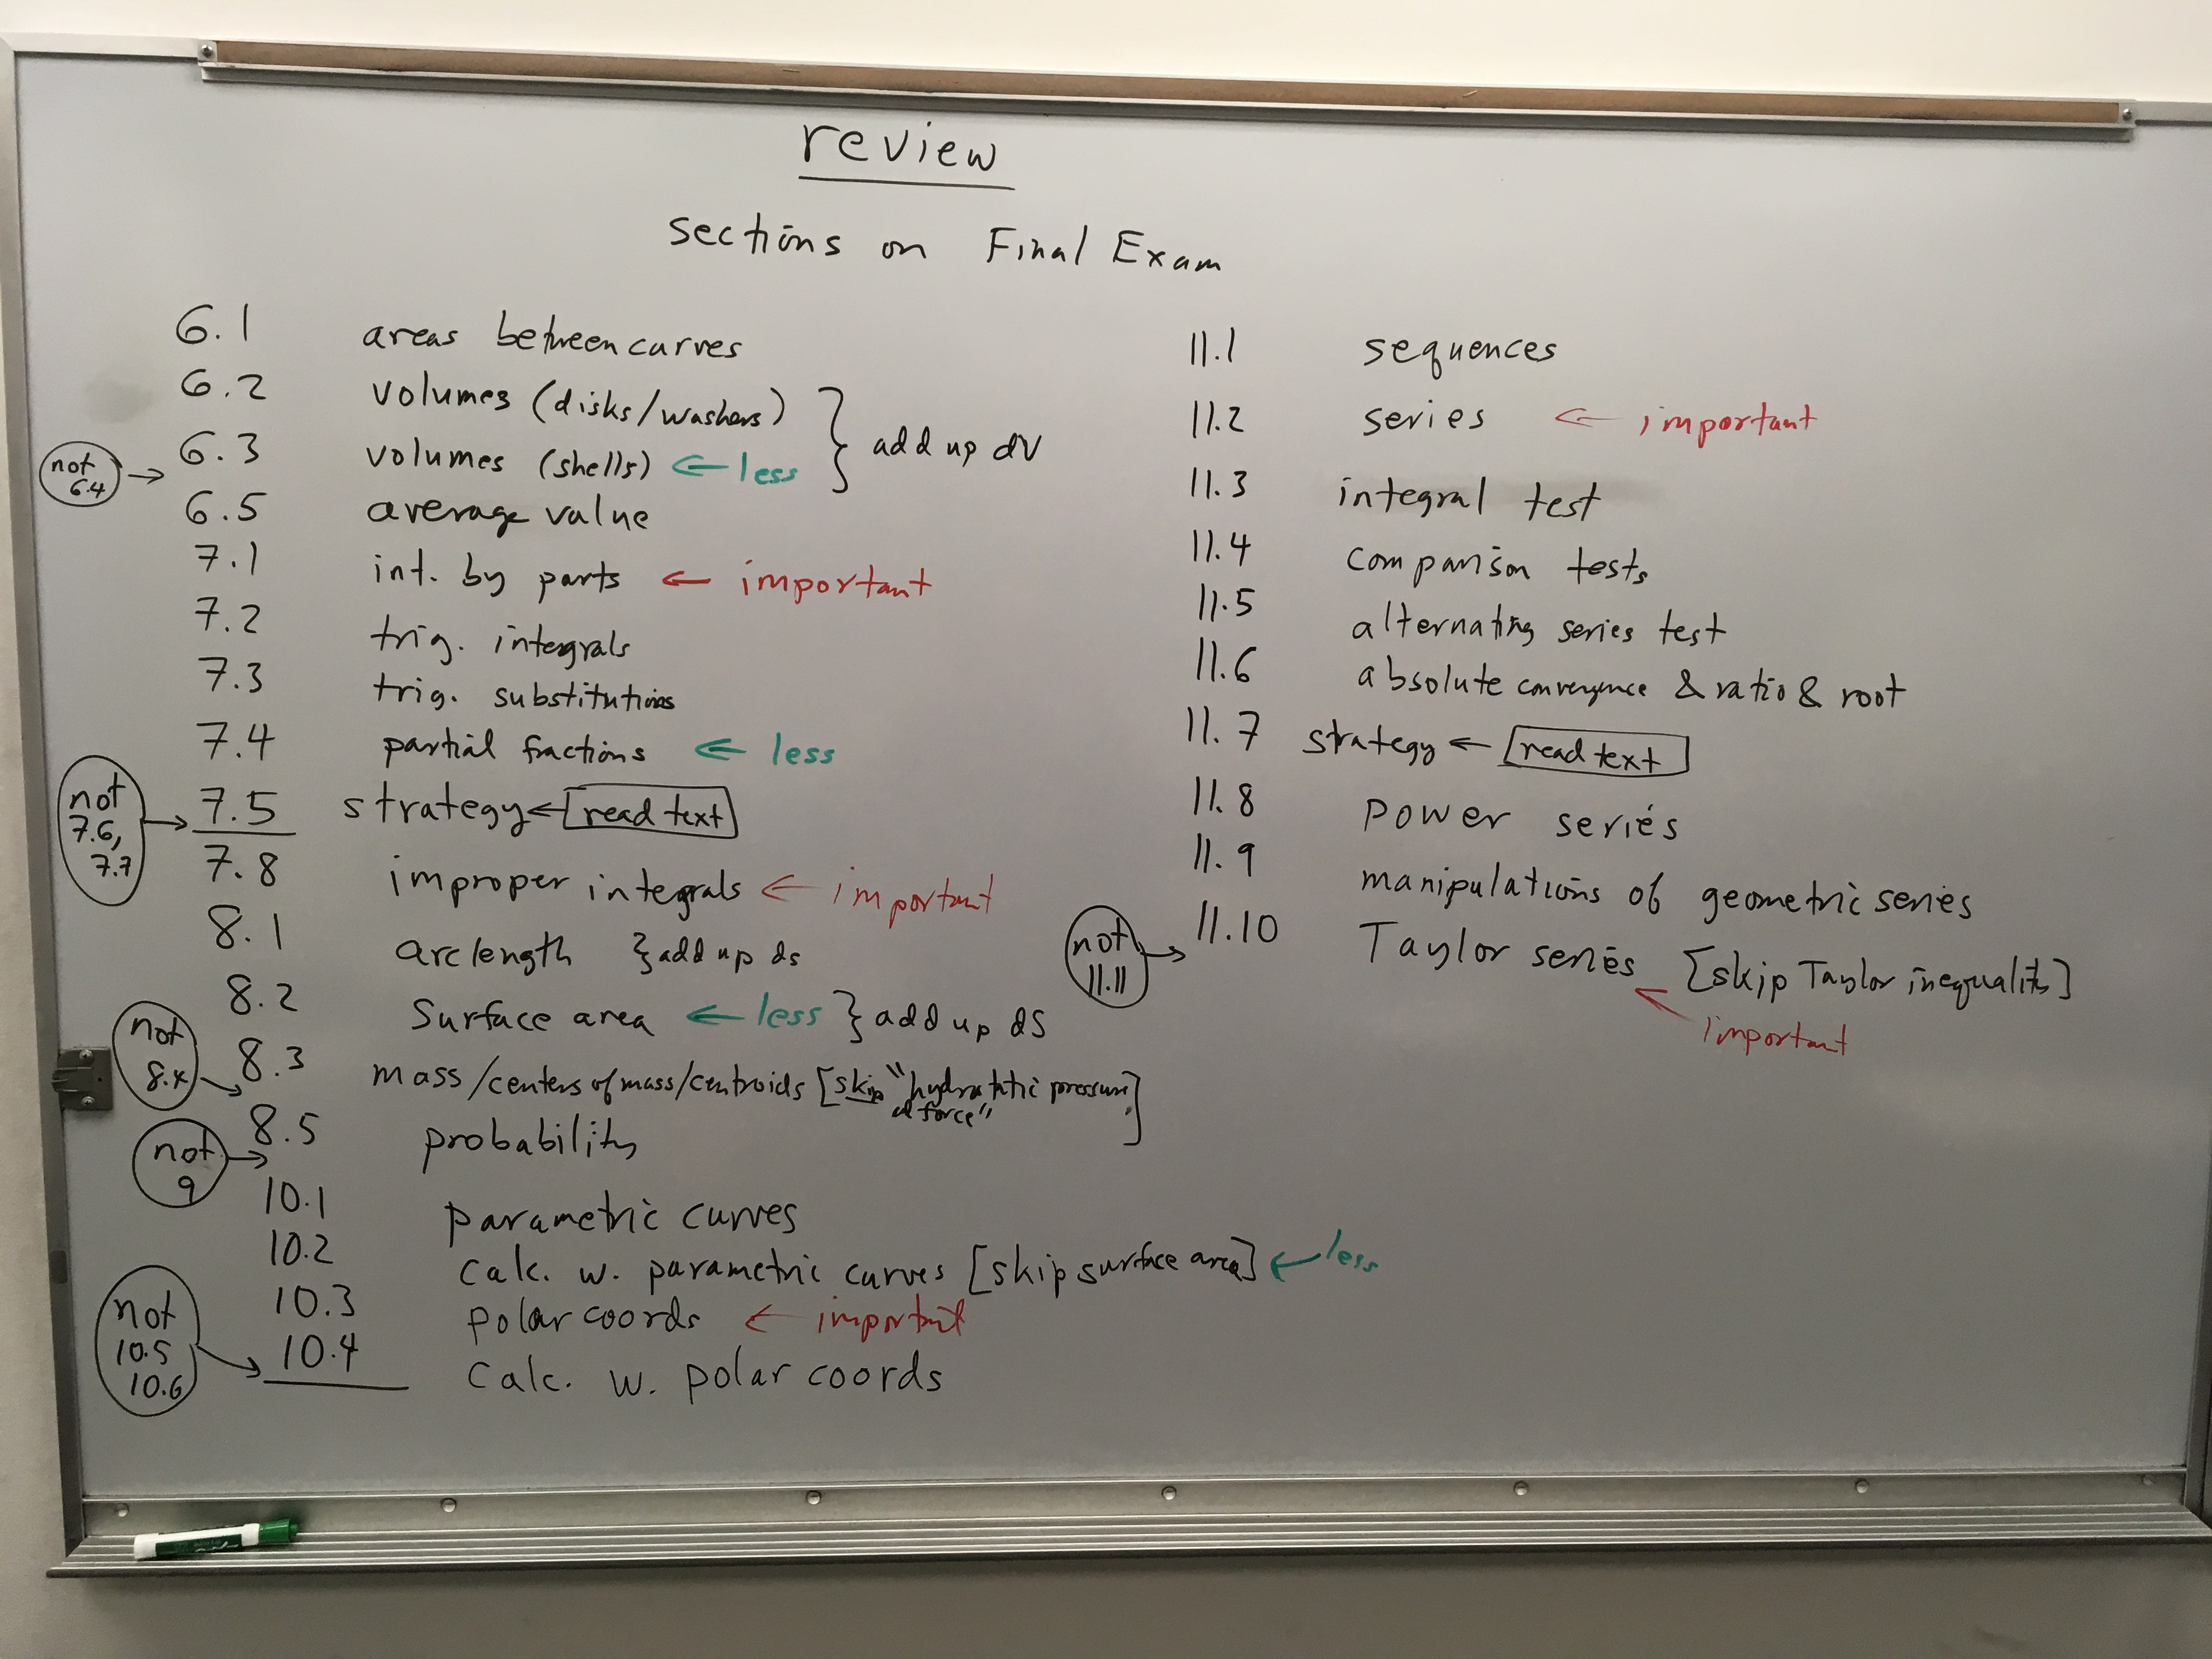 review
sections on Final Exam
6.1 areas between curves
6.2 volumes (disks/washers)
6.3 volumes (shells) ← less } add up dV
not 6.4 →
6.5 average value
7.1 int. by parts ← important
7.2 trig. integrals
7.3 trig. substitutions
7.4 partial fractions ← less
7.5 strategy ← [read text]
not 7.6, 7.7 →
7.8 improper integrals ← important
8.1 arclength } add up ds
8.2 surface area ← less } add up dS
8.3 mass/centers of mass/centroids [skip "hydrostatic pressure
force"]
not 8.4 →
8.5 probability
not 9 →
10.1 parametric curves
10.2 calc. w. parametric curves [skip surface area] ← less
10.3 polar coords ← important
10.4 calc. w. polar coords
not 10.5 10.6 →
11.1 sequences
11.2 series ← important
11.3 integral test
11.4 comparison tests
11.5 alternating series test
11.6 absolute convergence & ratio & root
11.7 strategy ← [read text]
11.8 power series
11.9 manipulations of geometric series
11.10 Taylor series [skip Taylor inequality]
← important
not 11.11 →